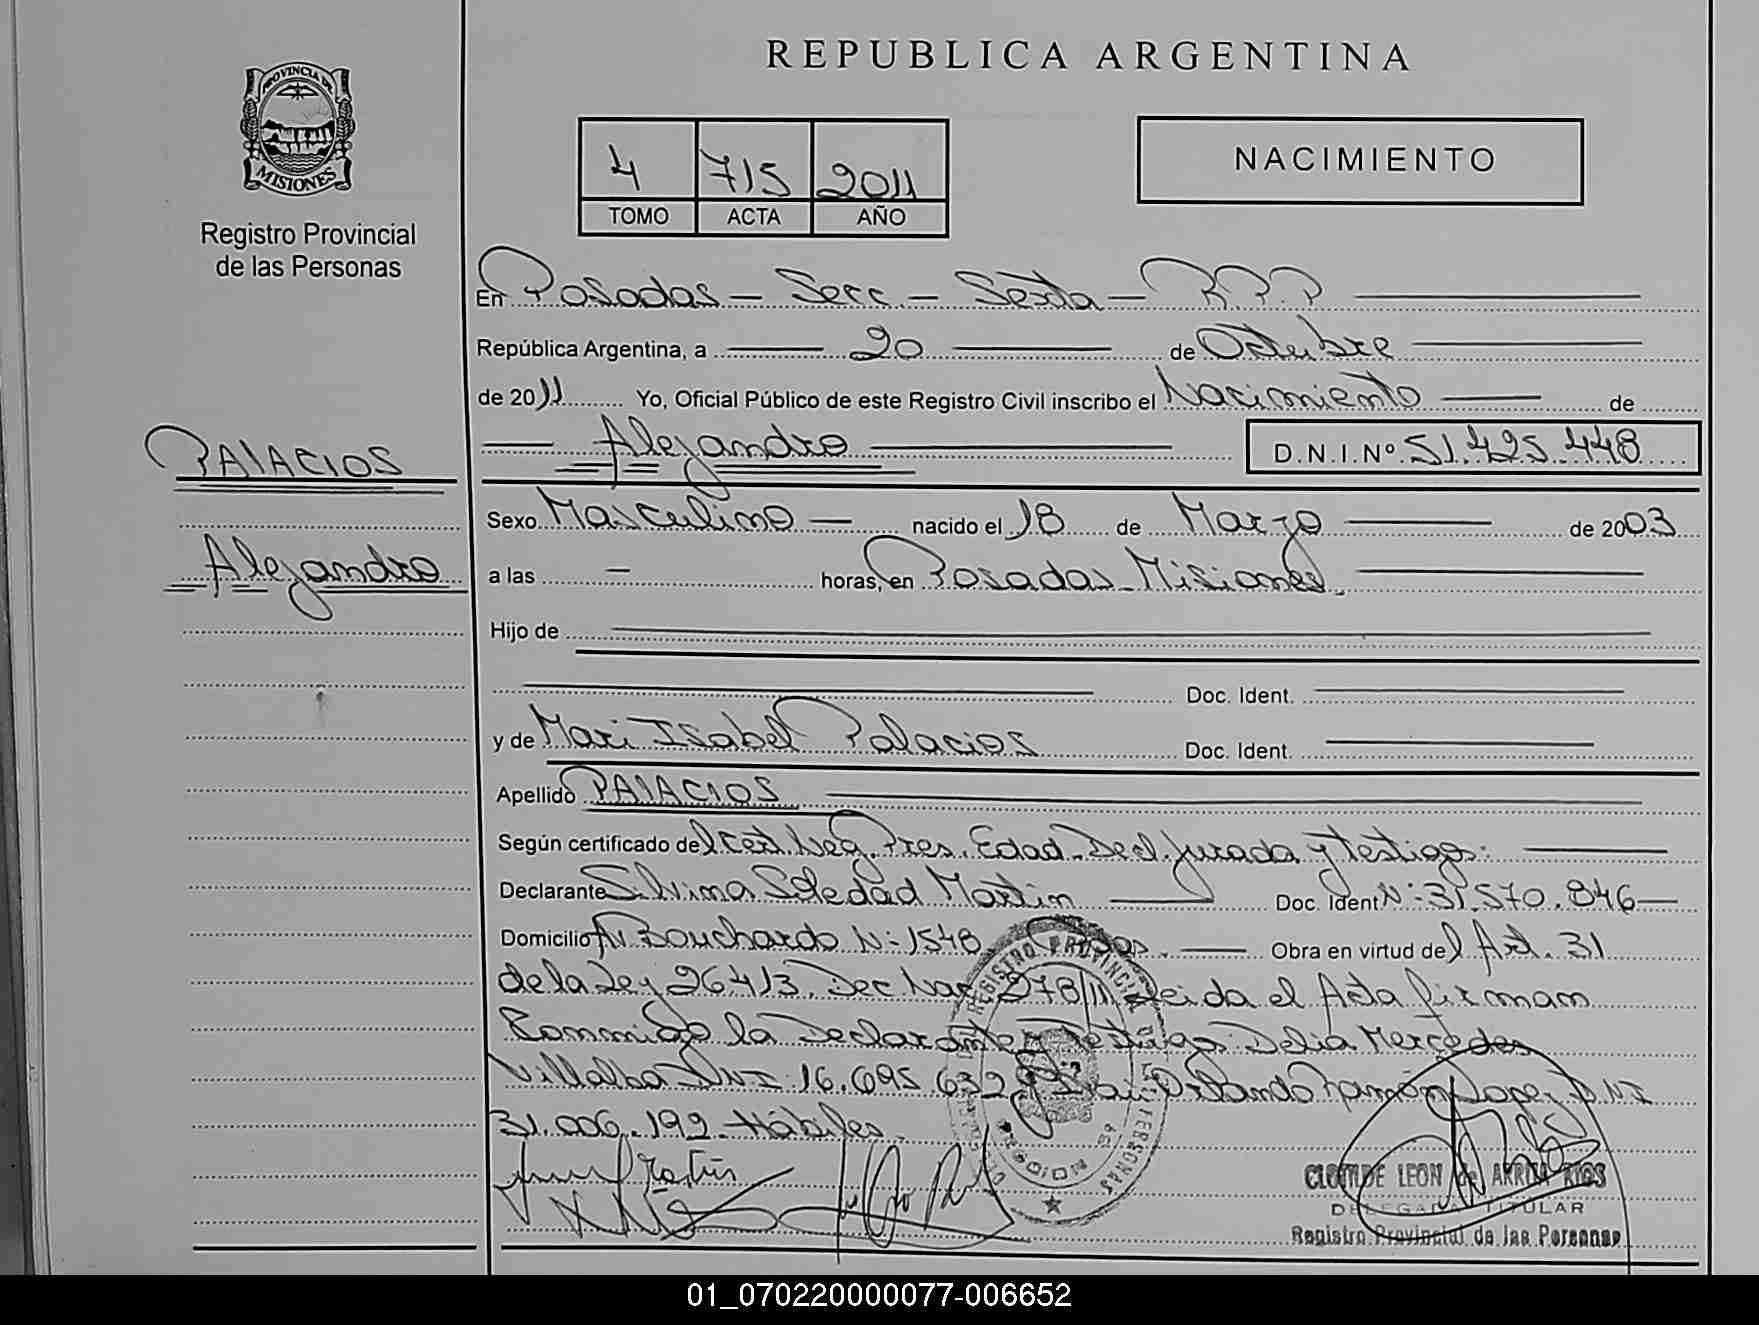 REPUBLICA ARGENTINA
PROVINCIA DE
MISIONES
Registro Provincial
de las Personas
4 715 2011
TOMO ACTA AÑO
NACIMIENTO
En Posadas - Secc. - Sexta - R.P.P
República Argentina, a 20 de Octubre
de 2011 Yo, Oficial Público de este Registro Civil inscribo el Nacimiento de
PALACIOS
Alejandro D.N.I.Nº 51.425.448
Sexo Masculino — nacido el 18 de Marzo de 2003
Alejandro
a las — horas, en Posadas - Misiones.
Hijo de
Doc. Ident.
y de Mari Isabel Palacios Doc. Ident.
Apellido PALACIOS
Según certificado del Cert. Neg. Pres. Edad - Decl. Jurada y testigos:
Declarante Silvina Soledad Martin Doc. Ident Nº 31.570.846
Domicilio Av. Bouchardo Nº 1548 Pdas. Obra en virtud del Art. 31
de la Ley 26413. Dec Nac. 278/11 Leida el Acta firman
Conmigo la Declarante y Testigos Delia Mercedes
Villalba DNI 16.695.632 y Orlando Ramón Lopez DNI
31.006.192 Hábiles.
REGISTRO PROVINCIAL DE LAS PERSONAS
CLOTILDE LEON de ARRIVA RIOS
DELEGADA TITULAR
Registro Provincial de las Personas
01_070220000077-006652